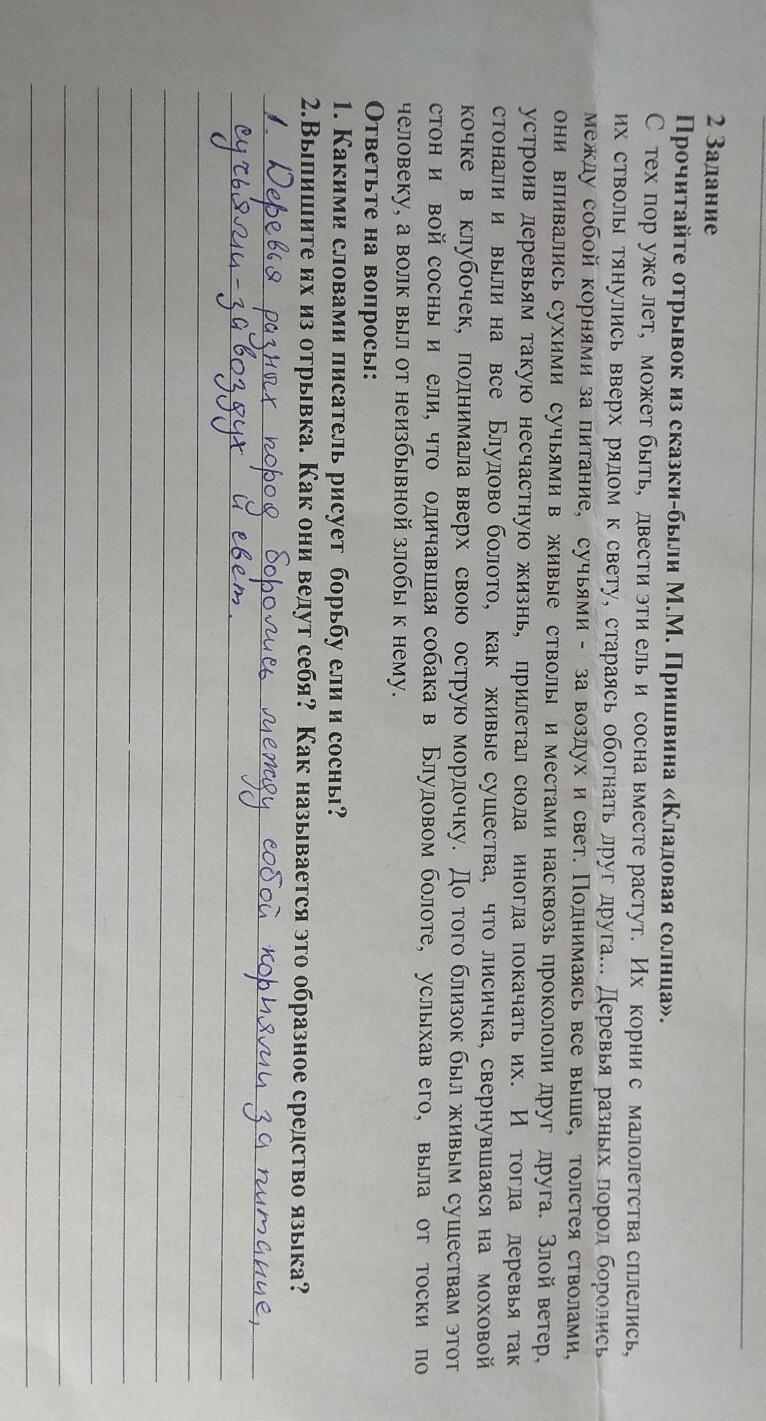 2 Задание
Прочитайте отрывок из сказки-были М.М. Пришвина «Кладовая солнца».
С тех пор уже лет, может быть, двести эти ель и сосна вместе растут. Их корни с малолетства сплелись,
их стволы тянулись вверх рядом к свету, стараясь обогнать друг друга... Деревья разных пород боролись
между собой корнями за питание, сучьями - за воздух и свет. Поднимаясь все выше, толстея стволами,
они впивались сухими сучьями в живые стволы и местами насквозь прокололи друг друга. Злой ветер,
устроив деревьям такую несчастную жизнь, прилетал сюда иногда покачать их. И тогда деревья так
стонали и выли на все Блудово болото, как живые существа, что лисичка, свернувшаяся на моховой
кочке в клубочек, поднимала вверх свою острую мордочку. До того близок был живым существам этот
стон и вой сосны и ели, что одичавшая собака в Блудовом болоте, услыхав его, выла от тоски по
человеку, а волк выл от неизбывной злобы к нему.
Ответьте на вопросы:
1. Какими словами писатель рисует борьбу ели и сосны?
2.Выпишите их из отрывка. Как они ведут себя? Как называется это образное средство языка?
1. Деревья разных пород боролись между собой корнями за питание,
сучьями-за воздух и свет.